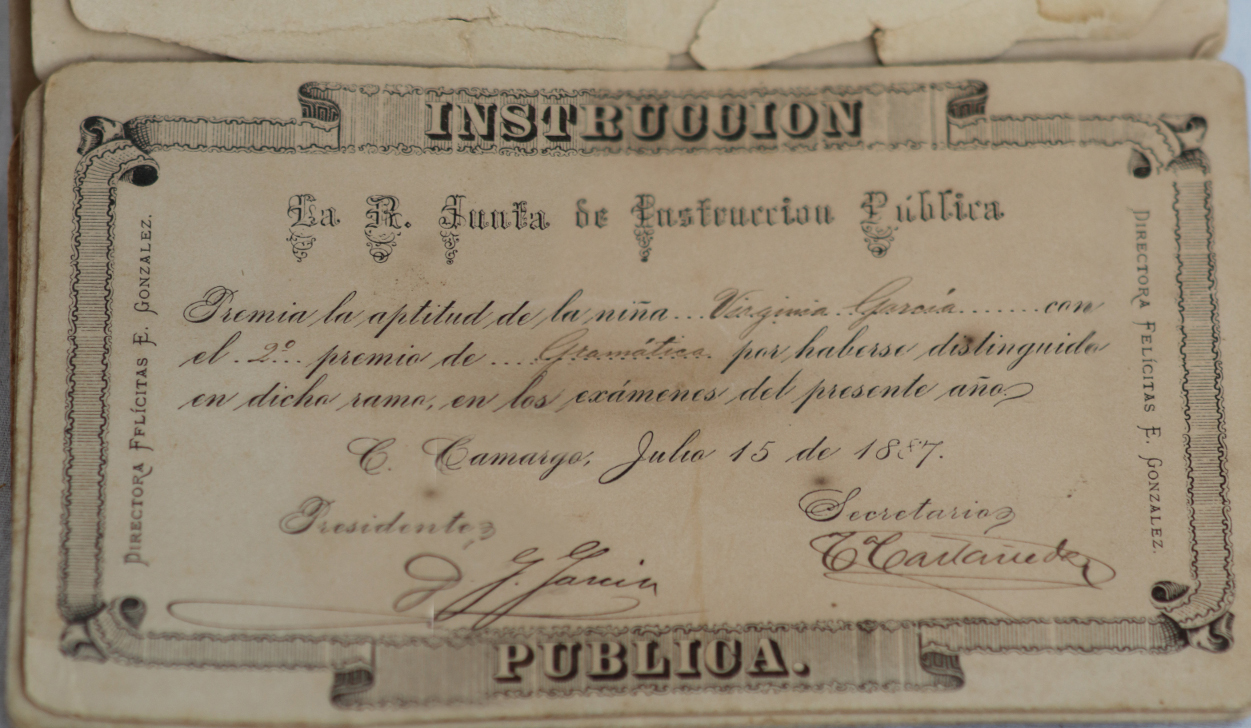 INSTRUCCION
La R. Junta de Instruccion Pública
Premia la aptitud de la niña ... Virginia García ....... con
el .. 2º .. premio de .... Gramática. por haberse distinguido
en dicho ramo, en los exámenes del presente año.
C. Camargo, Julio 15 de 1887.
Presidente,
Secretario,
J. García
Castañeda
PUBLICA.
DIRECTORA FELÍCITAS E. GONZALEZ.
DIRECTORA FELÍCITAS E. GONZALEZ.